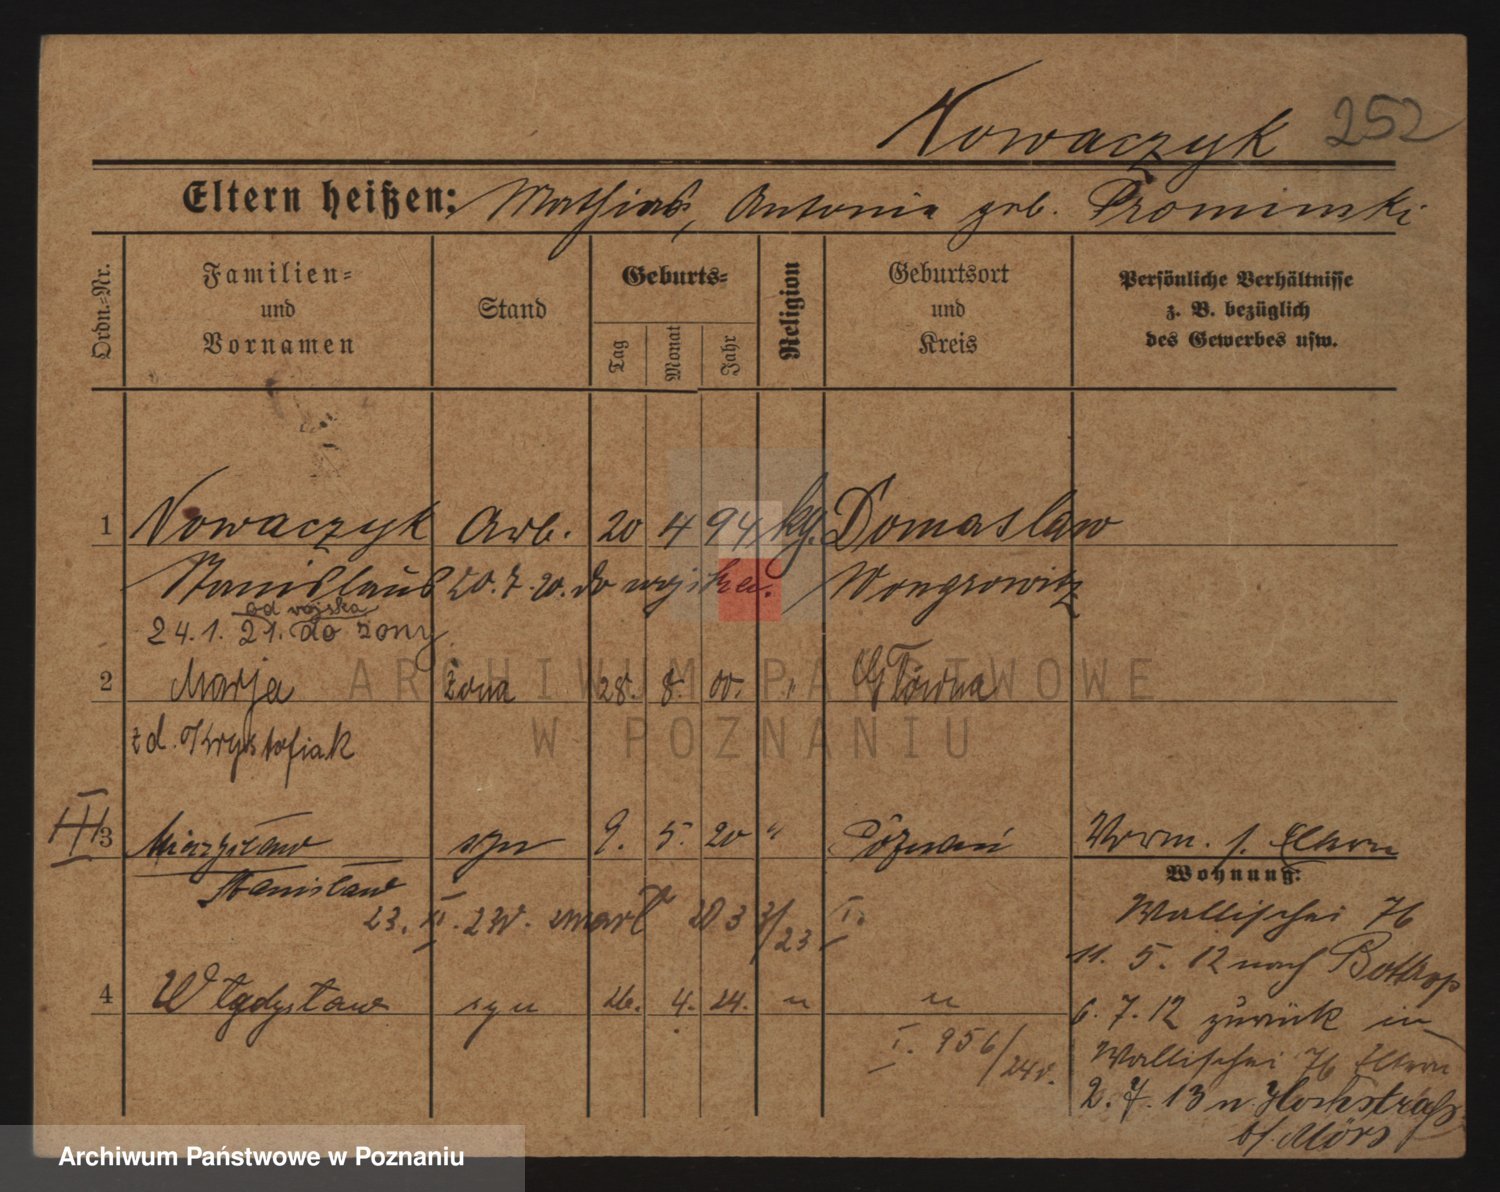 Nowaczyk 252
Eltern heißen: Mathias, Antonie geb. Prominski
Ordn.-Nr.
Familien-
und
Vornamen
Stand
Geburts-
Tag
Monat
Jahr
Religion
Geburtsort
und
Kreis
Persönliche Verhältnisse
z. B. bezüglich
des Gewerbes usw.
1 Nowaczyk Arb. 20 4 94 kg. Domaslaw
Stanislaus 20.7.20. do wojska. Wongrowitz
od wojska
24.1.21. do żony
2 Marja żona 28. 8. 00. " Główna
z d. Krystofiak
III
3 Mieczysław syn 9. 5. 20 " Poznań Vorm. s. Eltern
Stanisław
23. II. 23r. zmarł 203 3/23 I.
Wohnung:
Wallischei 76
11. 5. 12 nach Bottrop
4 Władysław syn 26. 4. 24. " "
6. 7. 12 zurück in
I. 956/24r.
Wallischei 76 Eltern
2. 7. 13 n. Hochstraß
b/. Mörs
ARCHIWUM PAŃSTWOWE
W POZNANIU
Archiwum Państwowe w Poznaniu